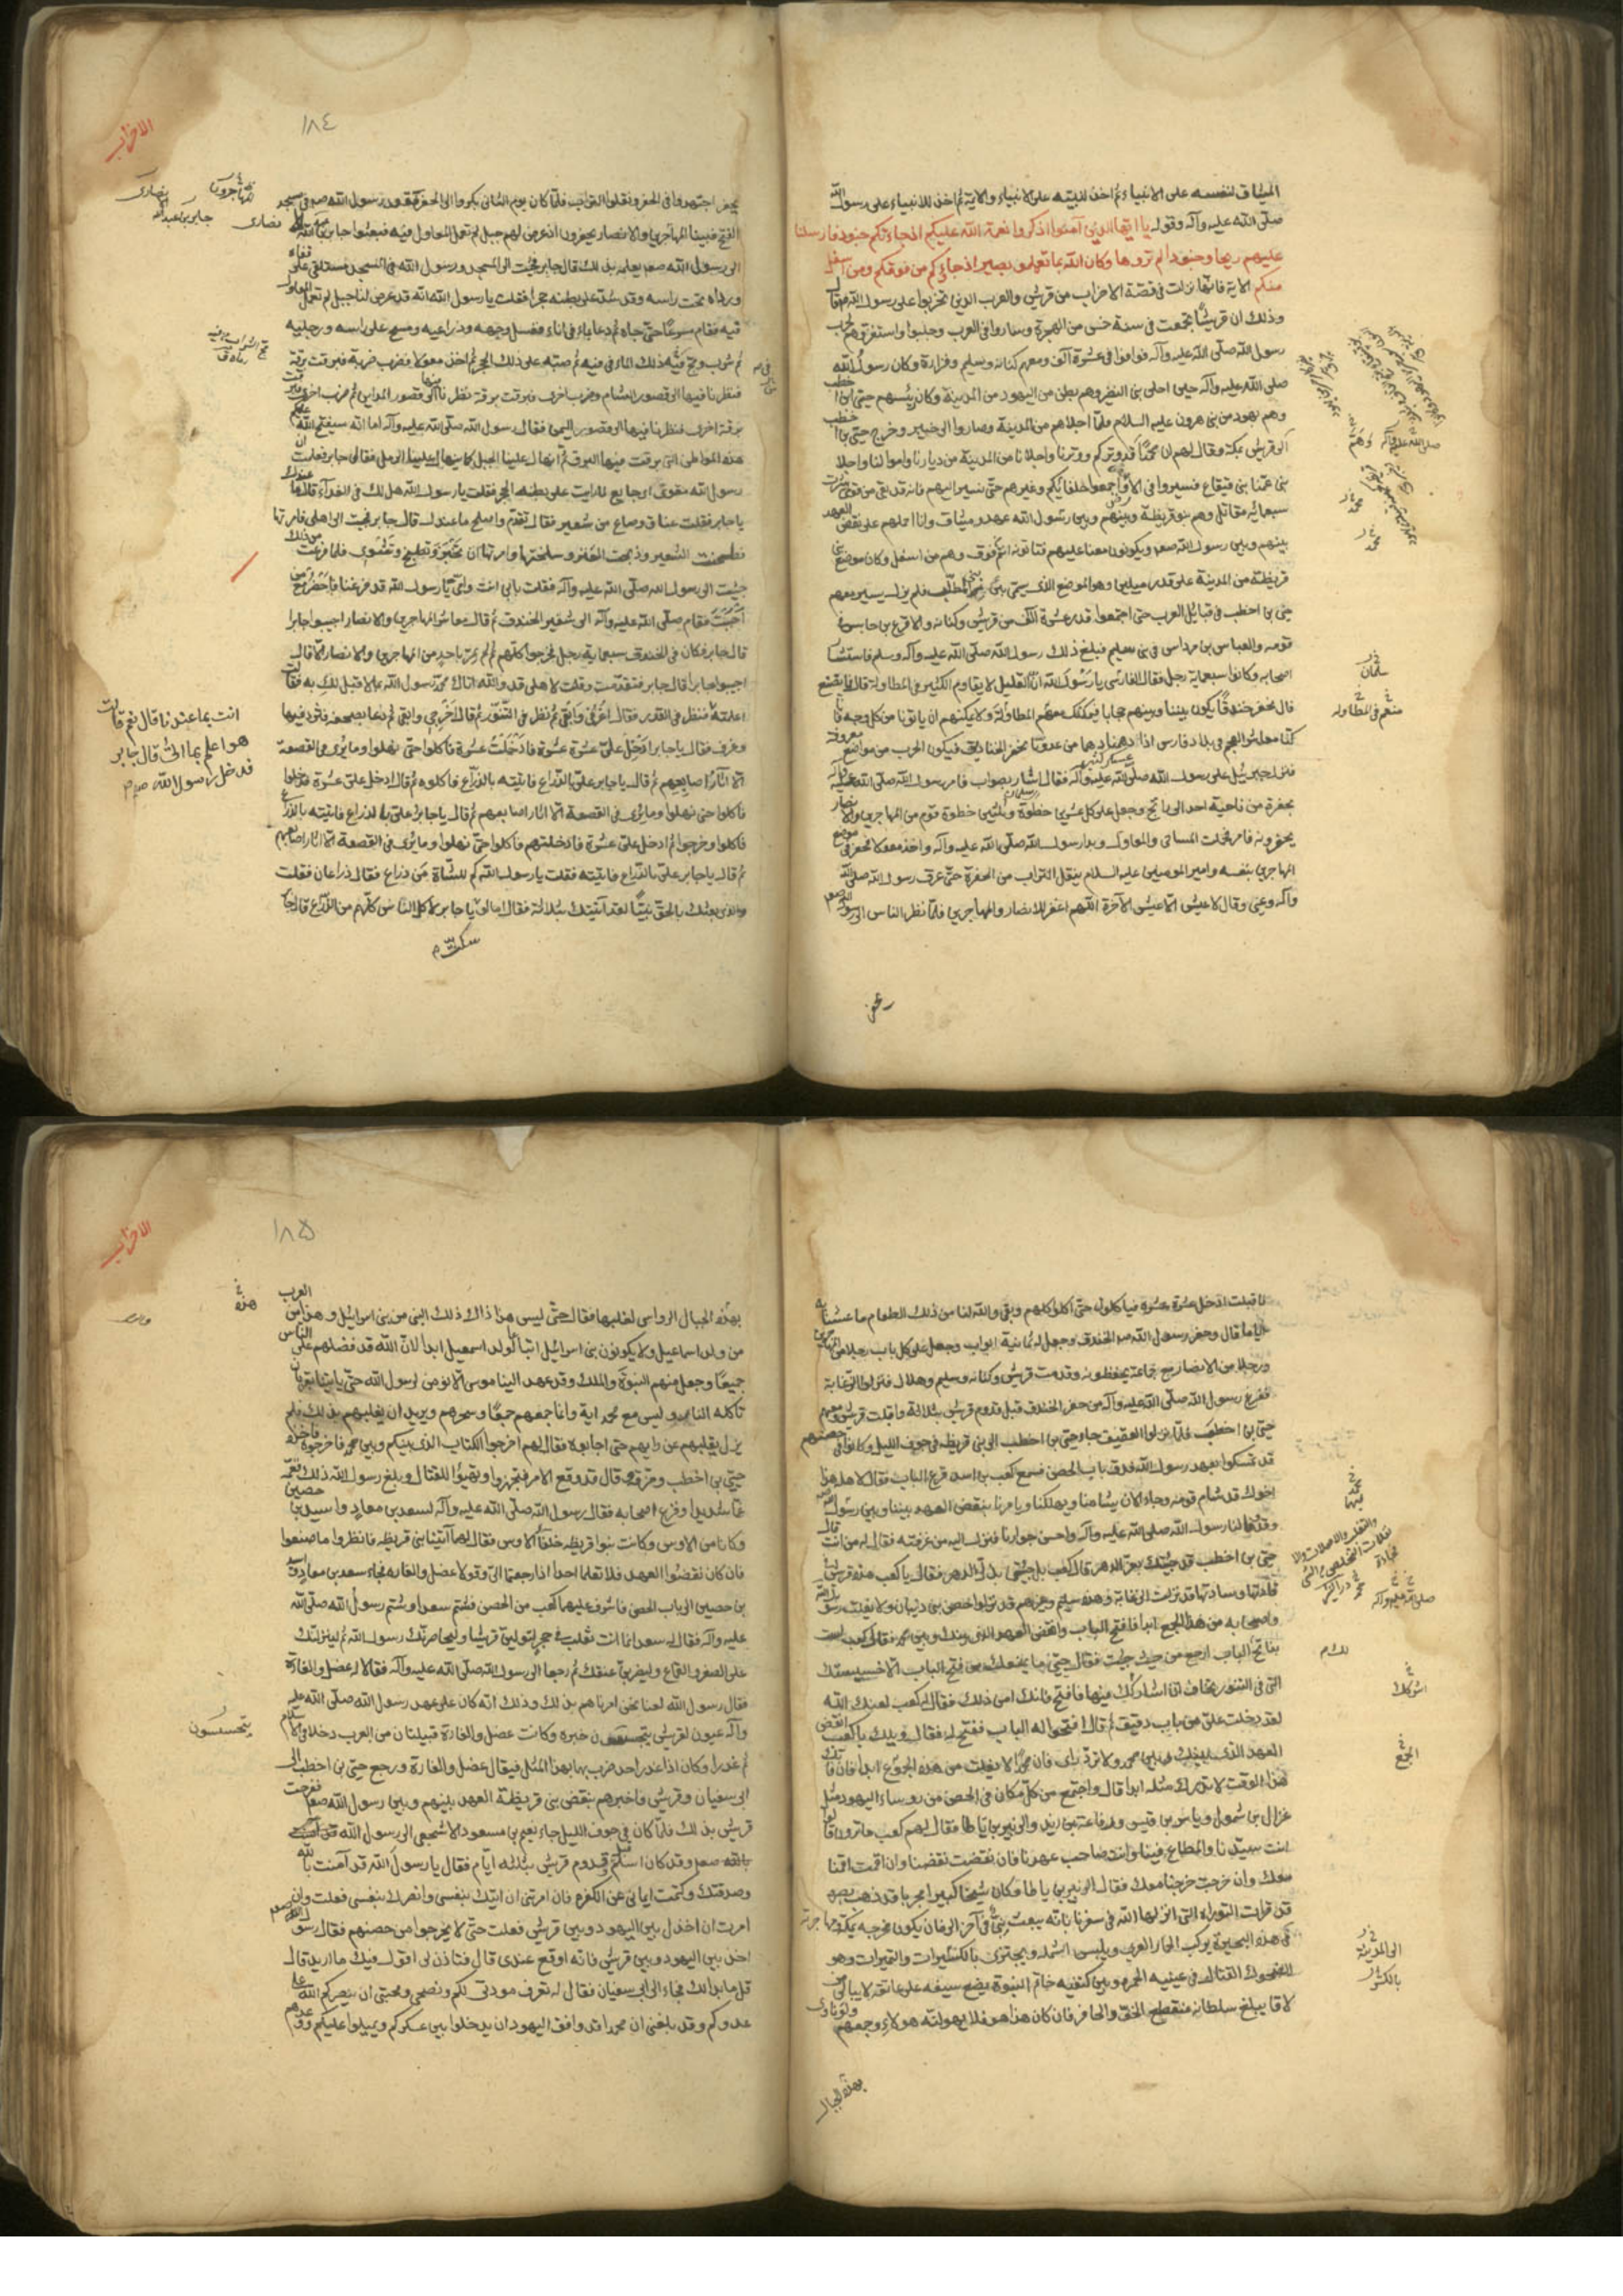 الميثاق لنفسه على الانبياء ثم اخذ لنبيه على الانبياء والاية ثم اخذ للانبياء على رسول الله
صلى الله عليه وآله وقوله يا ايها الذين آمنوا اذكروا نعمة الله عليكم اذ جاءتكم جنود فارسلنا
عليهم ريحا وجنودا لم تروها وكان الله بما تعملون بصيرا اذ جاؤكم من فوقكم ومن اسفل
منكم الاية فانها نزلت في قصة الاحزاب من قريش والعرب الذين تحزبوا على رسول الله قال
وذلك ان قريشا تجمعت في سنة خمس من الهجرة وساروا في العرب وجلبوا واستفزوهم لحرب
رسول الله صلى الله عليه وآله فوافوا في عشرة آلف ومعهم كنانة وسليم وفزارة وكان رسول الله
صلى الله عليه وآله حين اجلى بني النضير وهم بطن من اليهود من المدينة وكان رئيسهم حيي بن اخطب
وهم يهود من بني هرون عليه السلام فلما اجلاهم من المدينة وصاروا الى خيبر وخرج حيي بن اخطب
الى قريش بمكة وقال لهم ان محمدا قد وتركم ووترنا واجلانا من المدينة من ديارنا واموالنا واجلا
بني عمنا بني قينقاع فسيروا في الارض واجمعوا حلفائكم وغيرهم حتى نسير اليهم فانه قد بقي من قومي بيثرب
سبعمائة مقاتل وهم بنو قريظة وبينهم وبين رسول الله عهد وميثاق وانا احملهم على نقض العهد
بينهم وبين رسول الله صعم ويكونون معنا عليهم فتاتونه انتم من فوق وهم من اسفل وكان موضع بني
قريظة من المدينة على قدر ميلين وهو الموضع الذي يسمى بئر المطلب فلم يزل يسير معهم
حيي بن اخطب في قبايل العرب حتى اجتمعوا قدر عشرة آلف من قريش وكنانة والاقرع بن حابس في
قومه والعباس بن مرداس في بني سليم فبلغ ذلك رسول الله صلى الله عليه وآله وسلم فاستشار
اصحابه وكانوا سبعماية رجل فقال الفارسي يا رسول الله ان القليل لا يقاوم الكثير في المطاولة قال فما نصنع
قال نحفر خندقا يكون بيننا وبينهم حجابا فيمكنك منعهم المطاولة ولا يمكنهم ان ياتونا من كل وجه فانا
كنا معاشر العجم في بلاد فارس اذا دهمنا دهم من عدونا نحفر الخنادق فيكون الحرب من مواضع معروفة
فنزل جبرئيل على رسول الله صلى الله عليه وآله فقال اشار بصواب فامر رسول الله صلى الله عليه وآله
بحفره من ناحية احد الى راتج وجعل على كل عشرين خطوة وثلثين خطوة قوم من المهاجرين والانصار
يحفرونه فامر فحملت المساحي والمعاول وبدا رسول الله صلى الله عليه وآله واخذ معولا فحفر في موضع
المهاجرين بنفسه وامير المؤمنين عليه السلام ينقل التراب من الحفرة حتى عرق رسول الله صلى الله
وآله وعيي وقال لا عيش الا عيش الآخرة اللهم اغفر للانصار والمهاجرين فلما نظر الناس الى رسول الله صعم
سلمان
منعهم في المطاولة
الاحزاب
١٨٤
يحفر اجتهدوا في الحفر ونقلوا التراب فلما كان يوم الثاني بكروا الى الحفر وقعد رسول الله صم في مسجد
الفتح فبينا المهاجرين والانصار يحفرون اذ عرض لهم جبل لم تعمل المعاول فيه فبعثوا جابر بن عبد الله
الى رسول الله صعم يعلمه بذلك قال جابر فجئت الى المسجد ورسول الله في المسجد مستلقي على قفاه
ورداه تحت راسه وقد شد على بطنه حجرا فقلت يا رسول الله انه قد عرض لنا جبل لم تعمل المعاول
فيه فقام مسرعا حتى جاه ثم دعا بماء في اناء فغسل وجهه وذراعيه ومسح على راسه ورجليه
ثم شرب ومج فيه ذلك الماء في فيه ثم صبه على ذلك الحجر ثم اخذ معولا فضرب ضربة فبرقت برقة
فنظرنا فيها الى قصور الشام وضرب اخرى فبرقت برقة نظرنا فيها الى قصور المداين ثم ضرب اخرى فبرقت
برقة اخرى فنظرنا فيها الى قصور اليمن فقال رسول الله صلى الله عليه وآله اما انه سيفتح الله عليكم
هذه المواطن التي برقت فيها البرق ثم انهال علينا الجبل كما ينهال علينا الرمل فقال جابر فعلمت ان
رسول الله مقوي اي جايع لما رايت على بطنه الحجر فقلت يا رسول الله هل لك في الغداء قال ما عندك
يا جابر فقلت عناق وصاع من شعير فقال تقدم واصلح ما عندك قال جابر فجئت الى اهلي فامرتها
فطحنت الشعير وذبحت العنز وسلختها وامرتها ان تخبز وتطبخ وتشوي فلما فرغت من ذلك
جئت الى رسول الله صلى الله عليه وآله فقلت بابي انت وامي يا رسول الله قد فرغنا فاحضر مع من
احببت فقام صلى الله عليه وآله الى شفير الخندق ثم قال معاشر المهاجرين والانصار اجيبوا جابرا
قال جابر فكان في الخندق سبعماية رجل فخرجوا كلهم ثم لم يمر باحد من المهاجرين والانصار الا قال
اجيبوا جابرا قال جابر فتقدمت وقلت لاهلي قد والله اتاك محمد رسول الله بما لا قبل لك به فقالت
اعلمته فنظر في القدر فقال اغرفي وابقي ثم نظر في التنور ثم قال اخرجي وابقي ثم دعا بصحفة فثرد فيها
وغرف فقال يا جابر ادخل علي عشرة عشرة فادخلت عشرة فاكلوا حتى نهلوا وما يرى في القصعة
الا آثار اصابعهم ثم قال يا جابر علي بالذراع فاتيته بالذراع فاكلوه ثم قال ادخل علي عشرة فدخلوا
فاكلوا حتى نهلوا وما يرى في القصعة الا اثار اصابعهم ثم قال يا جابر علي بالذراع فاتيته بالذراع
فاكلوا وخرجوا ثم ادخل علي عشرة فادخلتهم فاكلوا حتى نهلوا وما يرى في القصعة الا آثار اصابعهم
ثم قال يا جابر علي بالذراع فاتيته فقلت يا رسول الله كم للشاة من ذراع فقال ذراعان فقلت
والذي بعثك بالحق نبيا لقد آتيتك بثلاثة فقال اما لو سكت يا جابر لاكل الناس كلهم من الذراع قال جابر
انت بما عندنا قال نعم قالت
هو اعلم بما اتى قال جابر
فدخل رسول الله صم
فاقبلت ادخل عشرة عشرة فياكلون حتى اكلوا كلهم وبقي والله لنا من ذلك الطعام ما عشنا به
اياما قال وحفر رسول الله صم الخندق وجعل له ثمانية ابواب وجعل على كل باب رجلا من المهاجرين
ورجلا من الانصار مع جماعة يحفظونه وقدمت قريش وكنانة وسليم وهلال فنزلوا الزغابة
ففرغ رسول الله صلى الله عليه وآله من حفر الخندق قبل قدوم قريش بثلاثة واقبلت قريش ومعهم
حيي بن اخطب فلما نزلوا العقيق جاء حيي بن اخطب الى بني قريظة في جوف الليل وكانوا في حصنهم
قد تمسكوا بعهد رسول الله فدق باب الحصن فسمع كعب بن اسد قرع الباب فقال لاهله هذا
اخوك قد شام قومه وجاء الان يشامنا ويهلكنا ويامرنا بنقض العهد بيننا وبين رسول الله
وقد وفا لنا رسول الله صلى الله عليه وآله واحسن جوارنا فنزل اليه من غرفته فقال له من انت قال
حيي بن اخطب قد جئتك بعز الدهر قال كعب بل جئتني بذل الدهر فقال يا كعب هذه قريش في
قادتها وسادتها قد نزلت
واصحابه من هذا الجمع ابدا فافتح الباب وانقض العهد الذي بينك وبين محمد فقال كعب لست
بفاتح الباب ارجع من حيث جئت فقال حيي ما يمنعك من فتح الباب الا خسيستك
التي في التنور تخاف ان اشاركك فيها فافتح فانك امن ذلك فقال له كعب لعنك الله
لقد دخلت علي من باب دقيق ثم قال افتحوا له الباب ففتح له فقال ويلك يا كعب انقض
العهد الذي بينك وبين محمد ولا ترد راي فان محمدا لا يفلت من هذه الجموع ابدا فان فاتك
هذا الوقت لا تدرك مثله ابدا قال واجتمع من كل مكان في الحصن من روساء اليهود مثل
غزال بن شمول وياسر بن قيس ورفاعة بن زيد والزبير بن باطا فقال لهم كعب ما ترون قالوا
انت سيدنا والمطاع فينا وانت صاحب عهدنا فان نقضت نقضنا وان اقمت اقمنا
معك وان خرجت خرجنا معك فقال الزبير بن باطا وكان شيخا كبيرا مجربا قد ذهب بصره
قد قرات التوراة التي انزلها الله في سفرنا بانه يبعث نبيا في آخر الزمان يكون مخرجه بمكة ومهاجرته
في هذه البحيرة يركب الحمار العري ويلبس الشملة ويجتزي بالكسيرات والتميرات وهو
الضحوك القتال في عينيه الحمرة وبين كتفيه خاتم النبوة يضع سيفه على عاتقه لا يبالي من
لاقا يبلغ سلطانه منقطع الخف والحافر فان كان هذا هو فلا يهولنه هولاء وجمعهم ولو ناوى
اشركك
الجمع
الى المدينة
بهذه الجبال
الاحزاب
١٨٥
بهذه الجبال الرواسي لغلبها فقال حيي ليس هذا ذاك ذلك النبي من بني اسرائيل وهذا من العرب
من ولد اسماعيل ولا يكونون بني اسرائيل اتباعا لولد اسمعيل ابدا لان الله قد فضلهم على الناس
جميعا وجعل منهم النبوة والملك وقد عهد الينا موسى الا نؤمن لرسول الله حتى ياتينا بقربان
تاكله النار وليس مع محمد اية وانما جمعهم جمعا وسحرهم ويريد ان يغلبهم بذلك فلم
يزل يقلبهم عن رايهم حتى اجابوه فقال لهم اخرجوا الكتاب الذي بينكم وبين محمد فاخرجوه فاخذه
حيي بن اخطب ومزقه وقال قد وقع الامر فتجهزوا وتهيؤا للقتال وبلغ رسول الله ذلك فغمه
غما شديدا وفزع اصحابه فقال رسول الله صلى الله عليه وآله لسعد بن معاذ واسيد بن حصين
وكانا من الاوس وكانت بنوا قريظة حلفاء الاوس فقال لهما آئتيا بني قريظة فانظروا ما صنعوا
فان كان نقضوا العهد فلا تعلما احدا اذا رجعتما الي وقولا عضل والقارة فجاء سعد بن معاذ واسيد
بن حصين الى باب الحصن فاشرف عليهما كعب من الحصن فشتم سعدا وشتم رسول الله صلى الله
عليه وآله فقال له سعد انما انت ثعلب في جحر لتولين قريشا وليحاصرنك رسول الله ثم لينزلنك
على الصغر والقماع وليضربن عنقك ثم رجعا الى رسول الله صلى الله عليه وآله فقالا له عضل والقارة
فقال رسول الله لعنا نحن امرناهم بذلك وذلك انه كان على عهد رسول الله صلى الله عليه
وآله عيون لقريش يتجسسون خبره وكانت عضل والقارة قبيلتان من العرب دخلا في الاسلام
ثم غدرا وكان اذا غدر احد ضرب بهما بهذا المثل فيقال عضل والقارة ورجع حيي بن اخطب الى
ابي سفيان وقريش فاخبرهم بنقض بني قريظة العهد بينهم وبين رسول الله صعم ففرحت
قريش بذلك فلما كان في جوف الليل جاء نعيم بن مسعود الاشجعي الى رسول الله
صعم وقد كان اسلم قبل قدوم قريش بثلثة ايام فقال يا رسول الله قد آمنت بالله
وصدقتك وكتمت ايماني عن الكفرة فان امرتني ان اتيك بنفسي وانصرك بنفسي فعلت وان
امرت ان اخذل بين اليهود وبين قريش فعلت حتى لا يخرجوا من حصنهم فقال رسول الله صعم
اخذل بين اليهود وبين قريش فانه اوقع عندي قال فتاذن لي اقول فيك ما اريد قال
قل ما بدا لك فجاء الى ابي سفيان فقال له تعرف مودتي لكم ونصحي ومحبتي ان ينصركم الله على
عدوكم وقد بلغني ان محمدا قد وافق اليهود ان يدخلوا بين عسكركم ويميلوا عليكم ووعدهم
يتجسسون
هذه